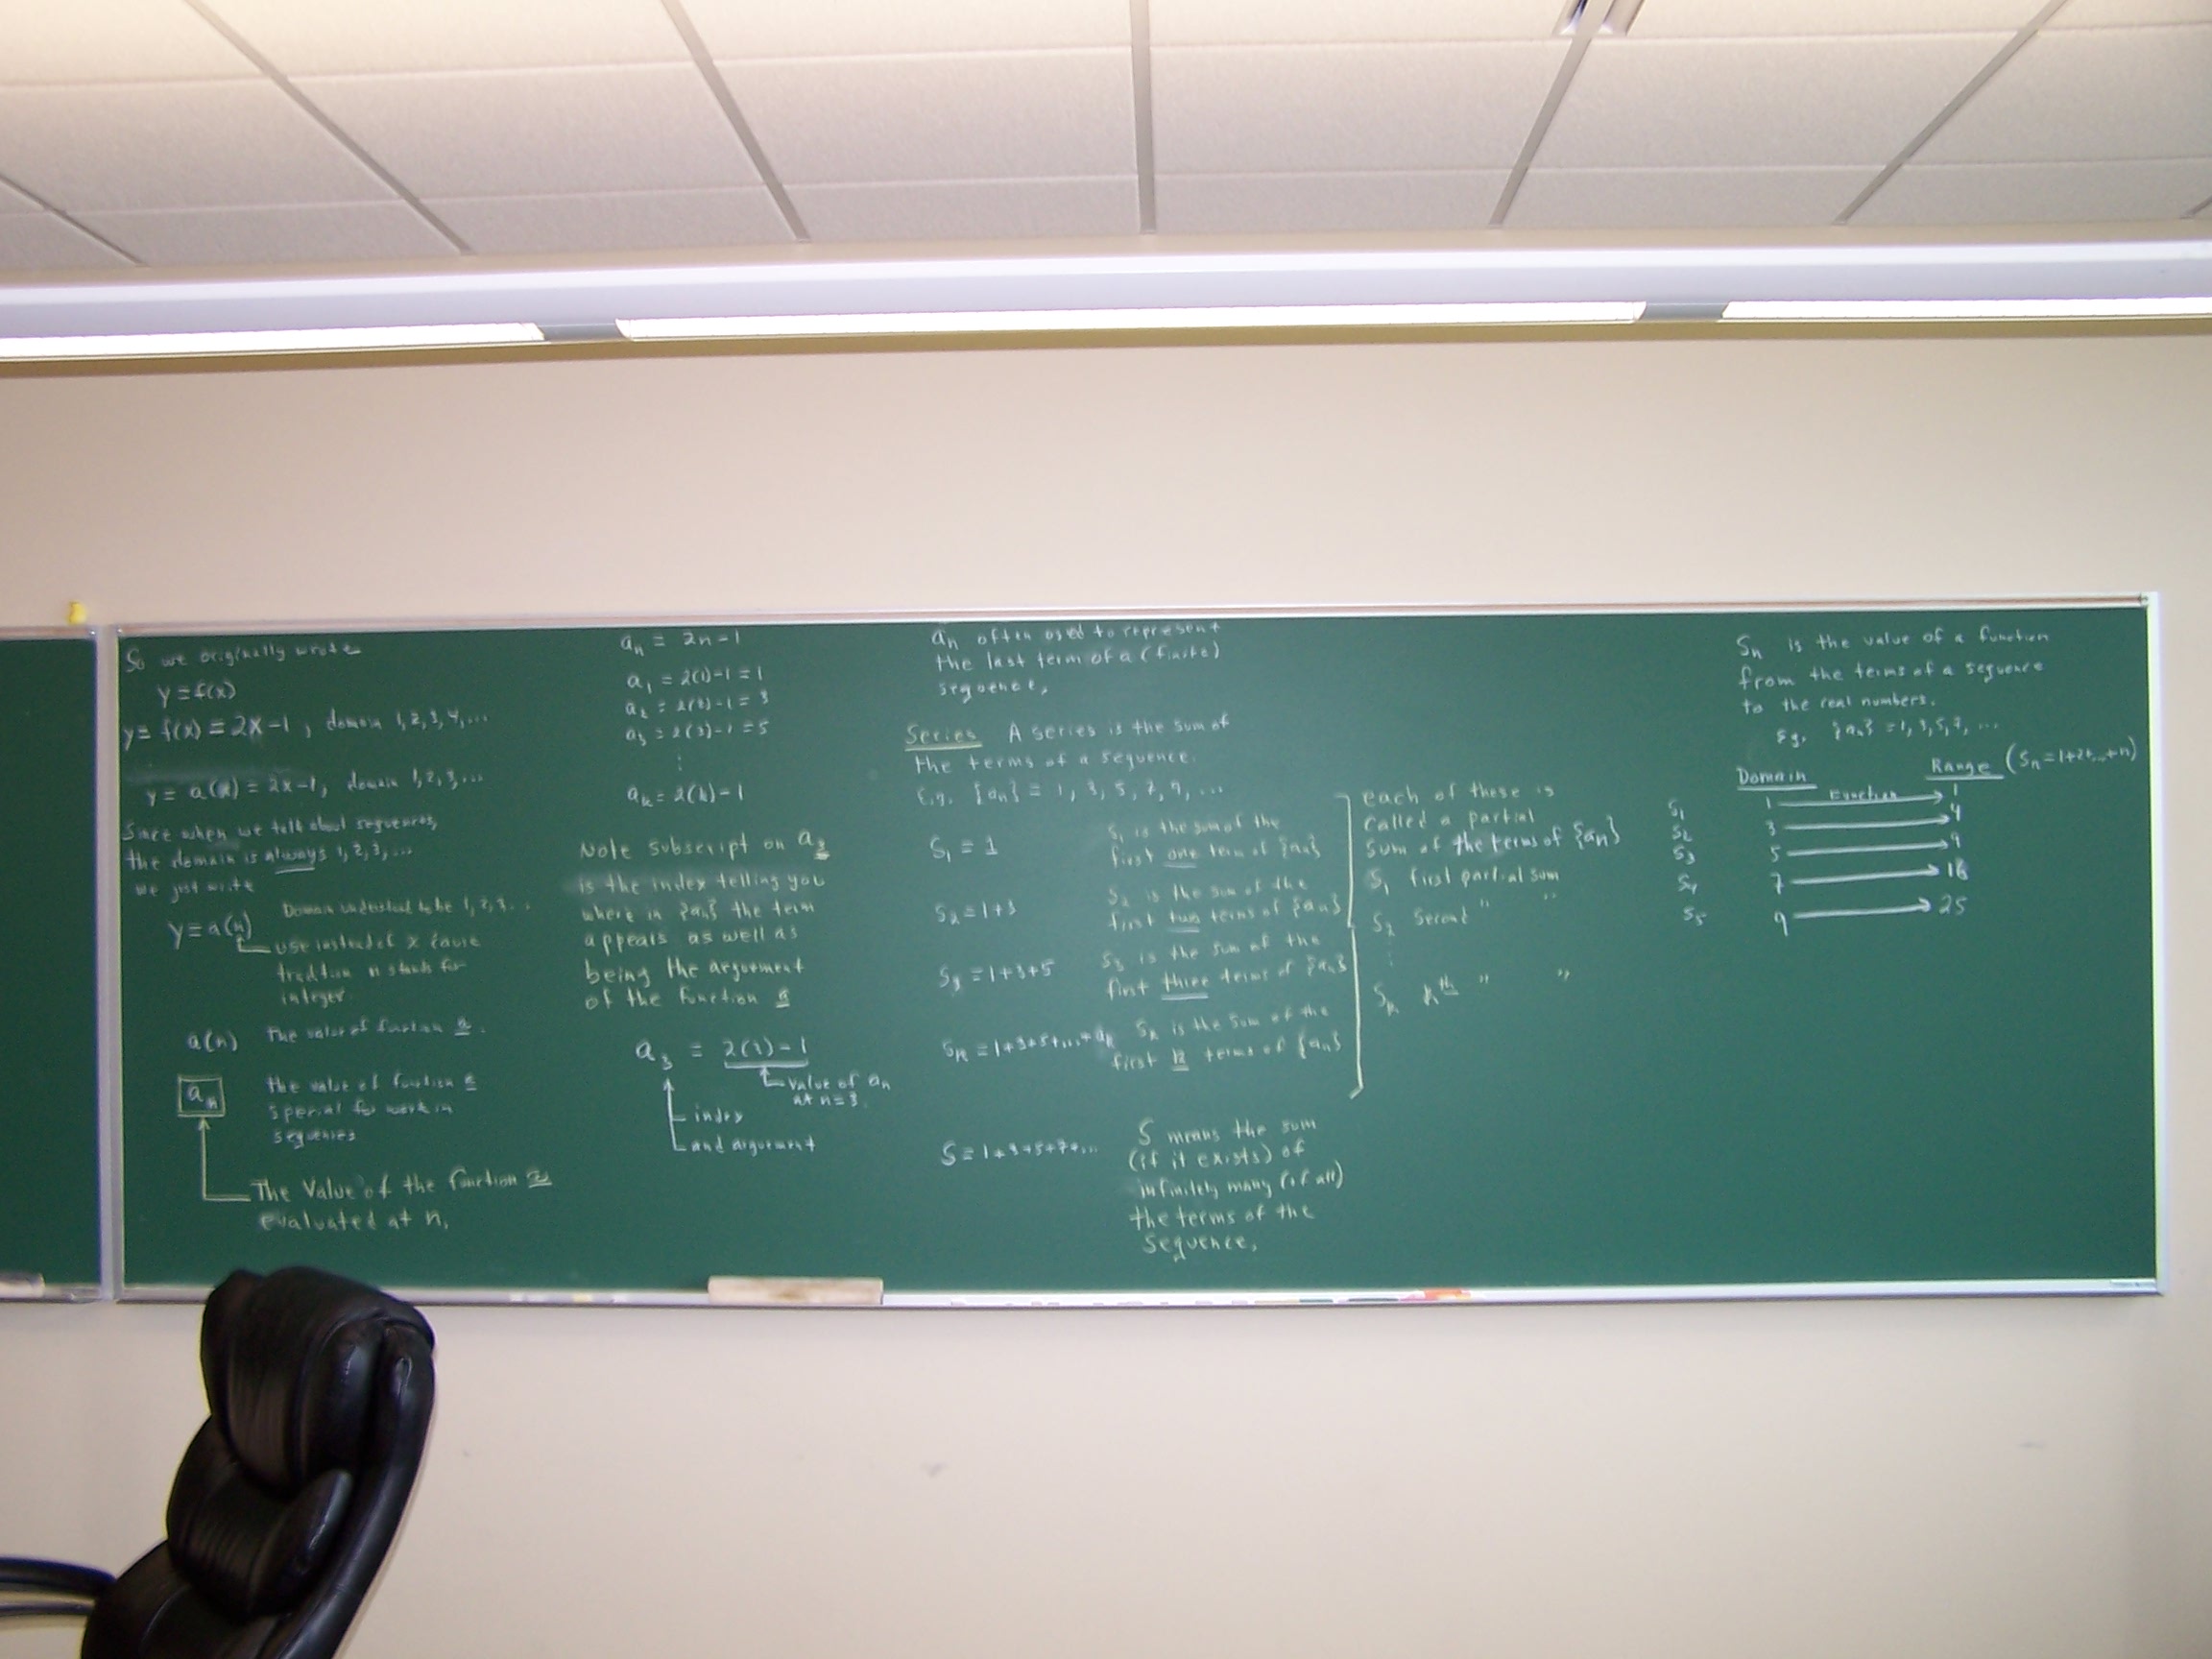 So we originally wrote
y = f(x)
y = f(x) = 2x-1, domain 1,2,3,4,...
y = a(x) = 2x-1, domain 1,2,3,...
Since when we talk about sequences,
the domain is always 1,2,3,...
we just write
y = a(n)
Domain understood to be 1,2,3...
use instead of x cause
tradition n stands for
integer.
a(n) The value of function a.
an the value of function a
special for work in
sequences
The Value of the function a
evaluated at n.
an = 2n-1
a1 = 2(1)-1 = 1
a2 = 2(2)-1 = 3
a3 = 2(3)-1 = 5
⋮
ak = 2(k)-1
Note subscript on a3
is the index telling you
where in {an} the term
appears as well as
being the arguement
of the function a
a3 = 2(3)-1
value of an
at n=3.
index
and arguement
an often used to represent
the last term of a (finite)
sequence,
Series A series is the sum of
the terms of a sequence.
E.g. {an} = 1, 3, 5, 7, 9, ...
S1 = 1
S1 is the sum of the
first one term of {an}
S2 = 1+3
S2 is the sum of the
first two terms of {an}
S3 = 1+3+5
S3 is the sum of the
first three terms of {an}
Sk = 1+3+5+...+ak
Sk is the sum of the
first k terms of {an}
S = 1+3+5+7+...
S means the sum
(if it exists) of
infinitely many (of all)
the terms of the
sequence,
each of these is
called a partial
sum of the terms of {an}
S1 first partial sum
S2 second " "
⋮
Sk kth " "
Sn is the value of a function
from the terms of a sequence
to the real numbers.
Eg, {an} = 1, 3, 5, 7, ...
Domain Range (Sn=1+2+...+n)
Function
S1 1 1
S2 3 4
S3 5 9
S4 7 16
S5 9 25